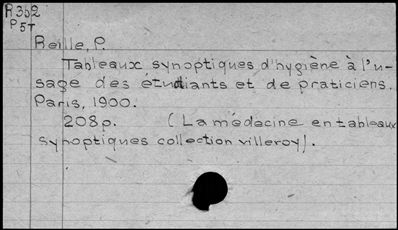 R352
P5T
Reille, P.
Tableaux synoptiques d'hygiène à l'u-
sage des étudiants et de praticiens.
Paris, 1900.
208p. (La médecine en tableaux
synoptiques collection villeroy).